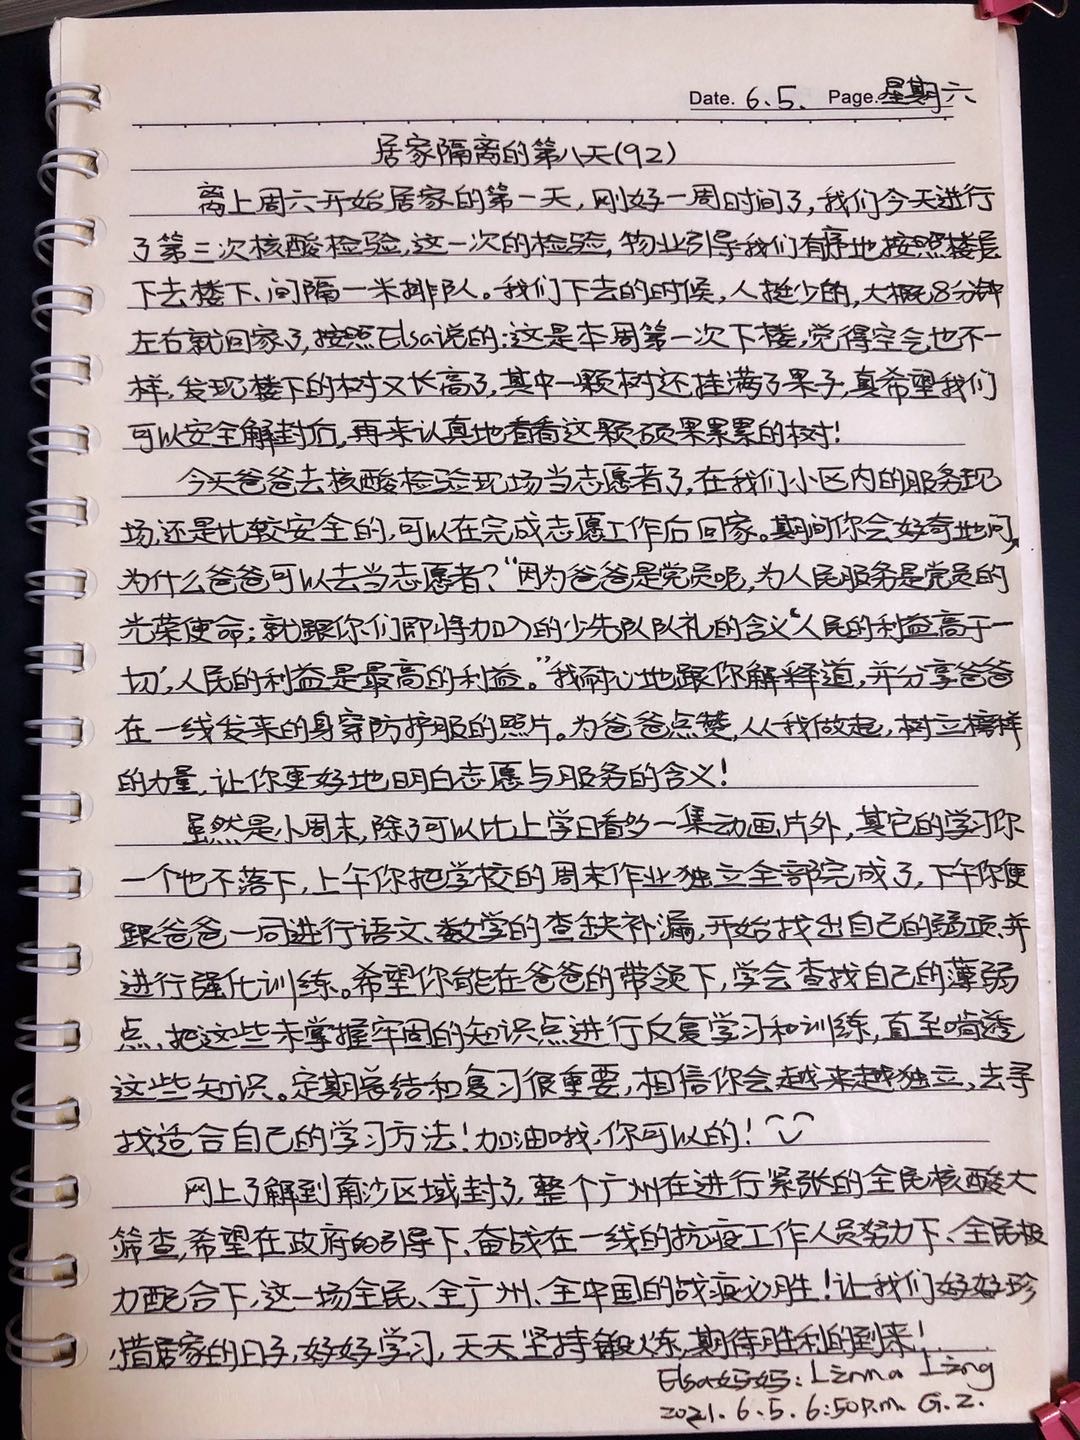 Date. 6.5. Page. 星期六
居家隔离的第八天(92)
离上周六开始居家的第一天，刚好一周时间了，我们今天进行
了第三次核酸检验，这一次的检验，物业引导我们有序地按照楼层
下去楼下、间隔一米排队。我们下去的时候，人挺少的，大概8分钟
左右就回家了，按照Elsa说的：这是本周第一次下楼，觉得空气也不一
样，发现楼下的树又长高了，其中一颗树还挂满了果子，真希望我们
可以安全解封后，再来认真地看看这颗硕果累累的树！
今天爸爸去核酸检验现场当志愿者了，在我们小区内的服务现
场，还是比较安全的，可以在完成志愿工作后回家。期间你会好奇地问，
为什么爸爸可以去当志愿者？“因为爸爸是党员呢，为人民服务是党员的
光荣使命；就跟你们即将加入的少先队队礼的含义‘人民的利益高于一
切’，人民的利益是最高的利益。”我耐心地跟你解释道，并分享爸爸
在一线发来的身穿防护服的照片。为爸爸点赞，从我做起，树立榜样
的力量，让你更好地明白志愿与服务的含义！
虽然是小周末，除了可以比上学日看多一集动画片外，其它的学习你
一个也不落下，上午你把学校的周末作业独立全部完成了，下午你便
跟爸爸一同进行语文、数学的查缺补漏，开始找出自己的弱项，并
进行强化训练。希望你能在爸爸的带领下，学会查找自己的薄弱
点，把这些未掌握牢固的知识点进行反复学习和训练，直至啃透
这些知识。定期总结和复习很重要，相信你会越来越独立，去寻
找适合自己的学习方法！加油哦，你可以的！
网上了解到南沙区域封了，整个广州在进行紧张的全民核酸大
筛查，希望在政府的引导下、奋战在一线的抗疫工作人员努力下、全民极
力配合下，这一场全民、全广州、全中国的战疫必胜！让我们好好珍
惜居家的日子，好好学习，天天坚持锻炼，期待胜利的到来！
Elsa妈妈：Linna Ling
2021.6.5. 6:50p.m. G.Z.